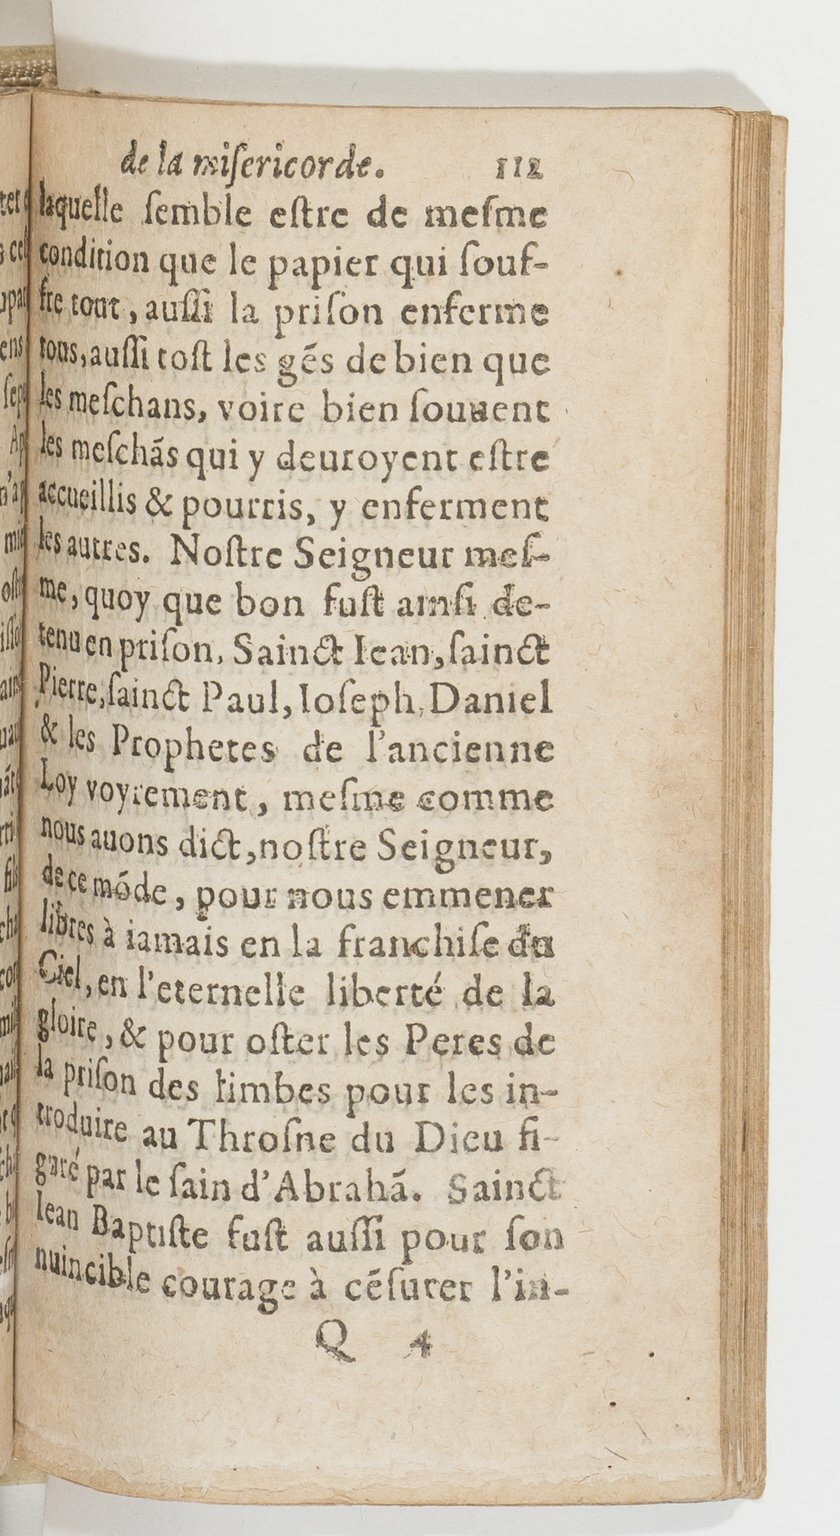 de la misericorde. 112
laquelle semble estre de mesme
condition que le papier qui souf-
fre tout, aussi la prison enferme
tous, aussi tost les gẽs de bien que
les meschans, voire bien souuent
les meschãs qui y deuroyent estre
accueillis & pourris, y enferment
les autres. Nostre Seigneur mes-
me, quoy que bon fust ainsi de-
tenu en prison, Sainct Iean, sainct
Pierre, sainct Paul, Ioseph, Daniel
& les Prophetes de l'ancienne
Loy voyrement, mesme comme
nous auons dict, nostre Seigneur,
de ce mõde, pour nous emmener
libres à iamais en la franchise du
Ciel, en l'eternelle liberté de la
gloire, & pour oster les Peres de
la prison des limbes pour les in-
troduire au Throsne du Dieu fi-
guré par le sain d'Abrahã. Sainct
Iean Baptiste fust aussi pour son
nuincible courage à cẽsurer l'in-
Q 4